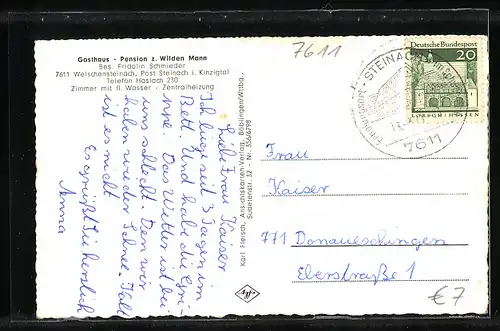 Gasthaus - Pension z. Wilden Mann
Bes. Fridolin Schmieder
7611 Welschensteinach, Post Steinach i. Kinzigtal
Telefon Haslach 230
Zimmer mit fl. Wasser - Zentralheizung
7611
STEINACH
7611
Deutsche Bundespost
20
LORSCH / HESSEN
Karl Fleisch, Ansichtskarten-Verlag, Böblingen/Wttbg.
Sudetenstr. 52 - Nr. 356/6798
Liebe Frau Kaiser
Ich liege seit 3 Tagen im
Bett. Und habe die Grip-
pe. Das Wetter ist bei
uns schlecht. Den wir
haben wieder Schnee. Kalt
ist es nicht
Es grüßt Sie herzlich
Anna
Frau
Kaiser
771 Donaueschingen
Eberstraße 1
€ 7